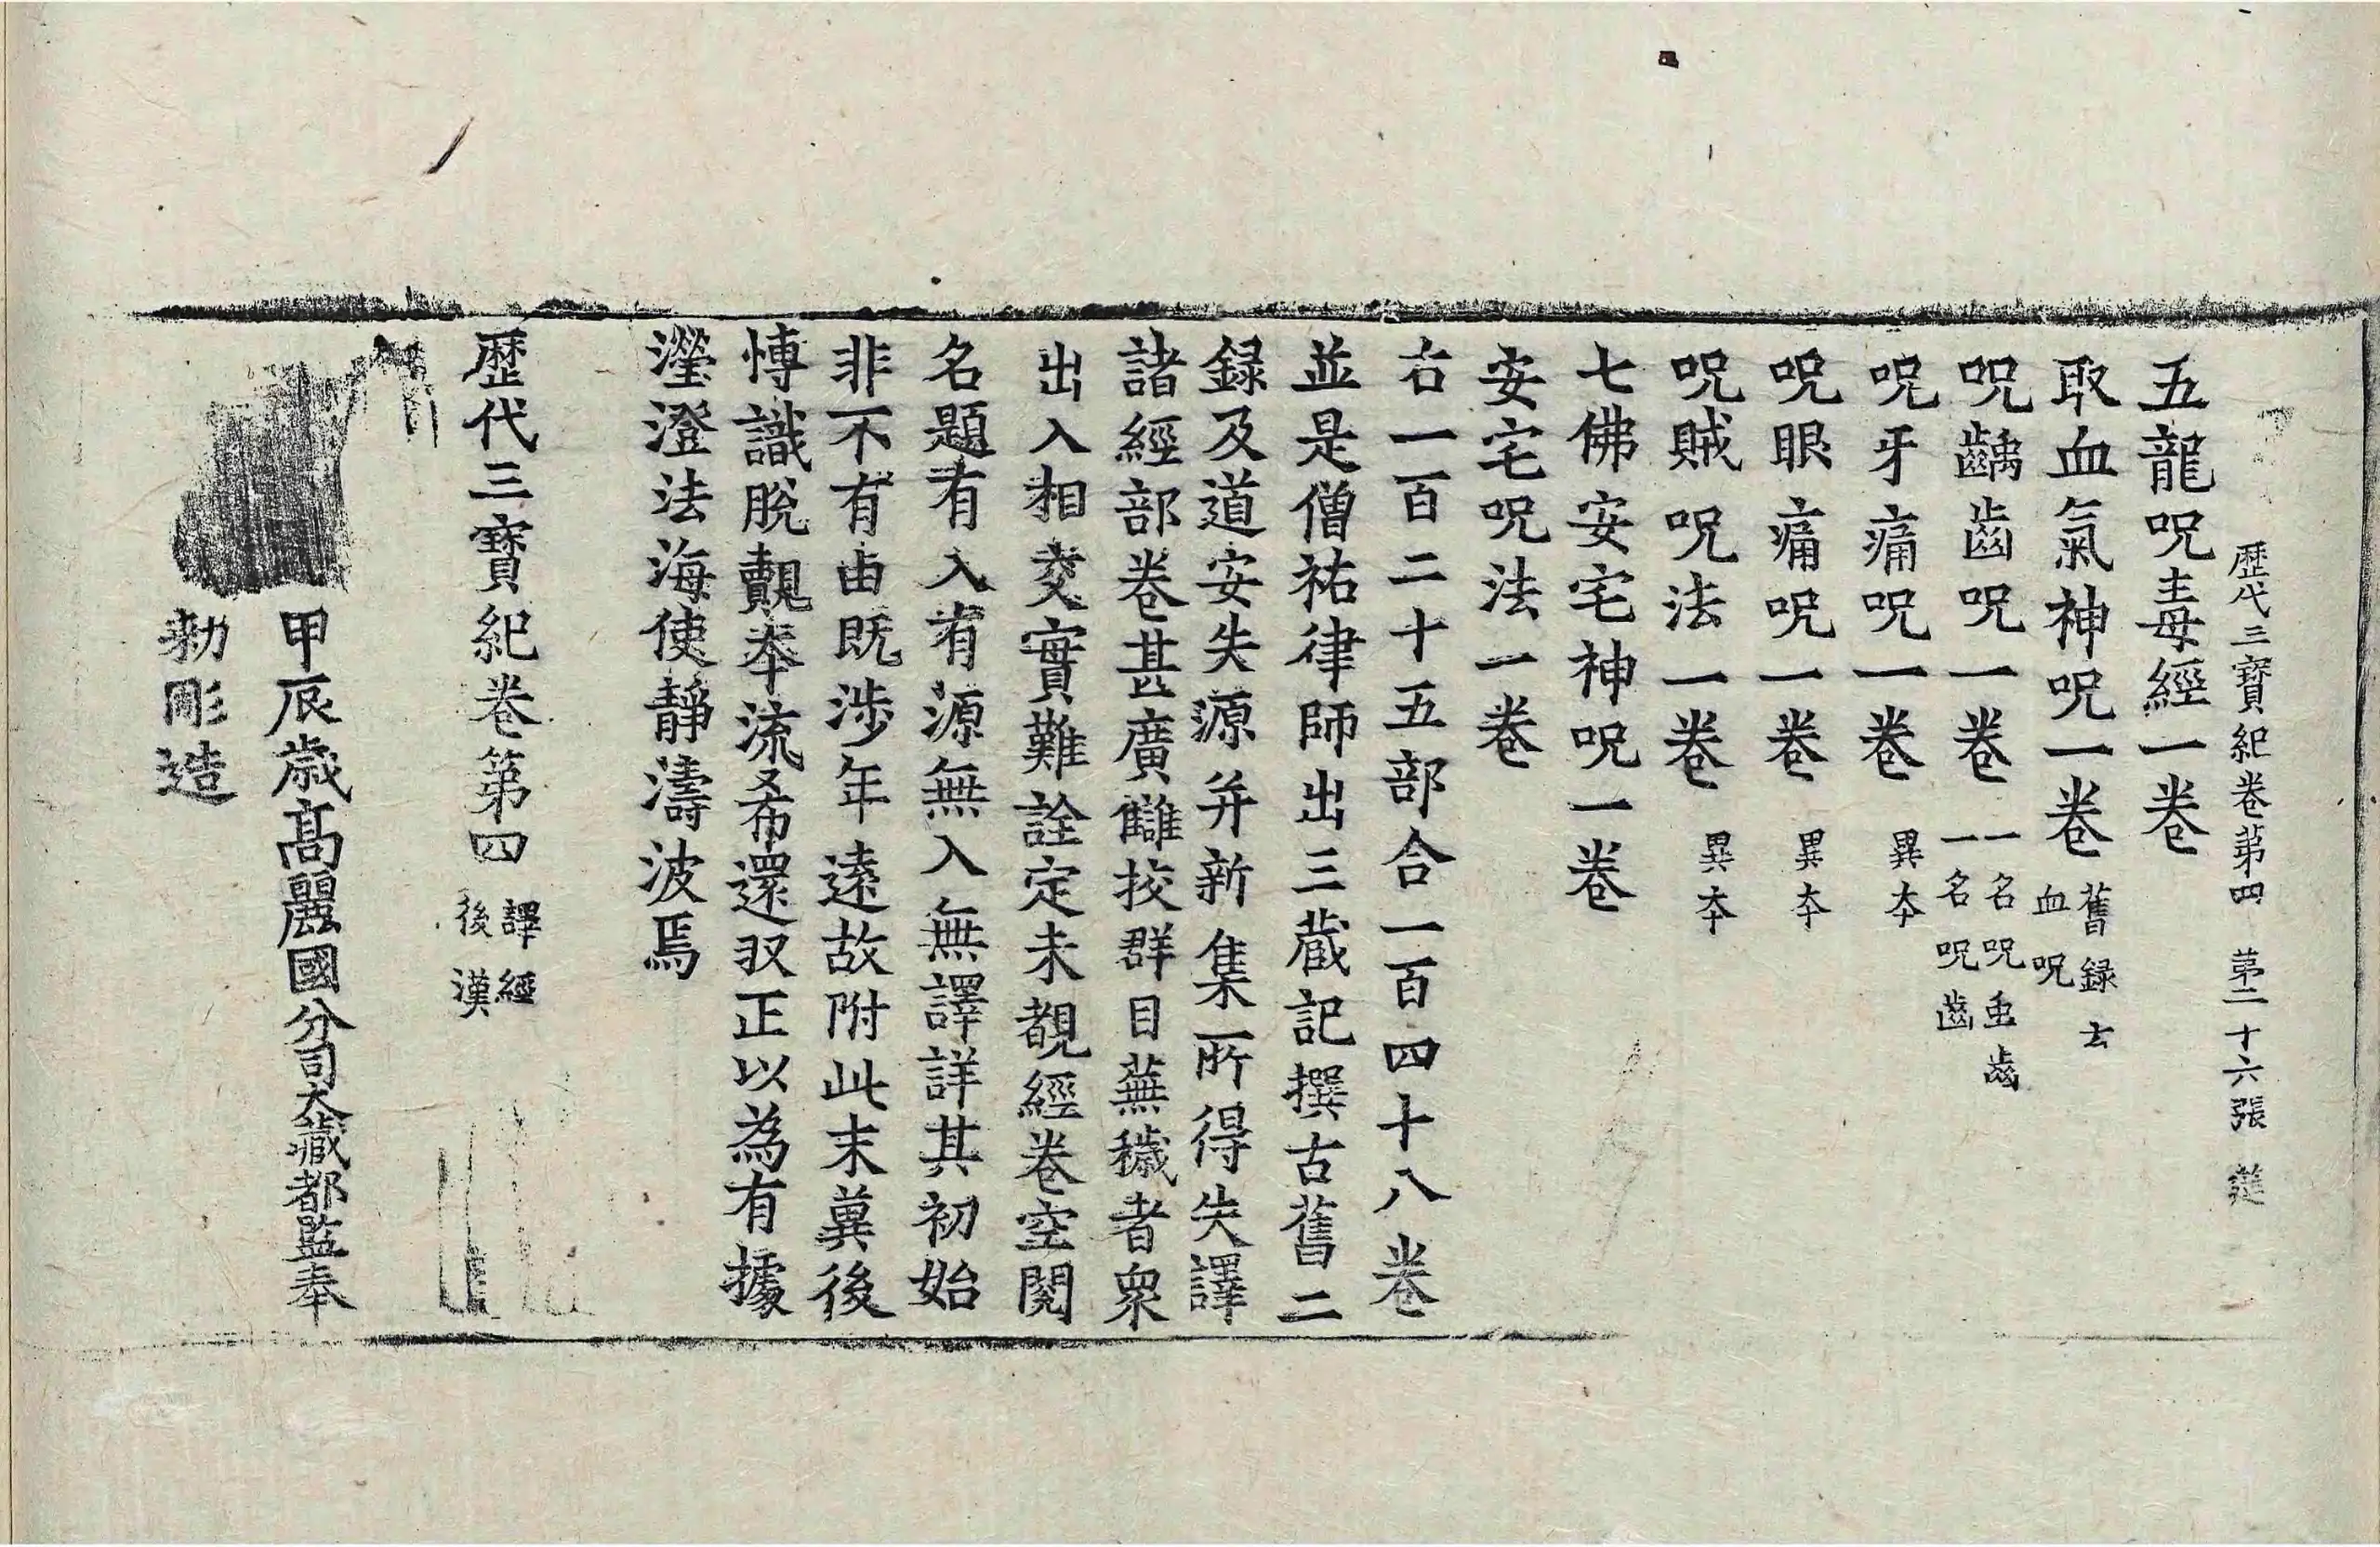 歷代三寶紀卷第四　第二十六張
五龍呪毒經一卷
取血氣神呪一卷 舊録云血呪
呪齲齒呪一卷 一名呪虫齒一名呪齒
呪牙痛呪一卷 異本
呪眼痛呪一卷 異本
呪賊呪法一卷 異本
七佛安宅神呪一卷
安宅呪法一卷
右一百二十五部合一百四十八卷
並是僧祐律師出三藏記撰古舊二
録及道安失源并新集所得失譯
諸經部卷甚廣讎挍群目蕪穢者衆
出入相交實難詮定未覩經卷空閱
名題有入有源無入無譯詳其初始
非不有由既涉年遠故附此末冀後
愽識脫覿本流希還収正以為有據
瀅澄法海使靜濤波焉
歷代三寶紀卷第四 譯經後漢
甲辰歳髙麗國分司大藏都監奉
勑彫造